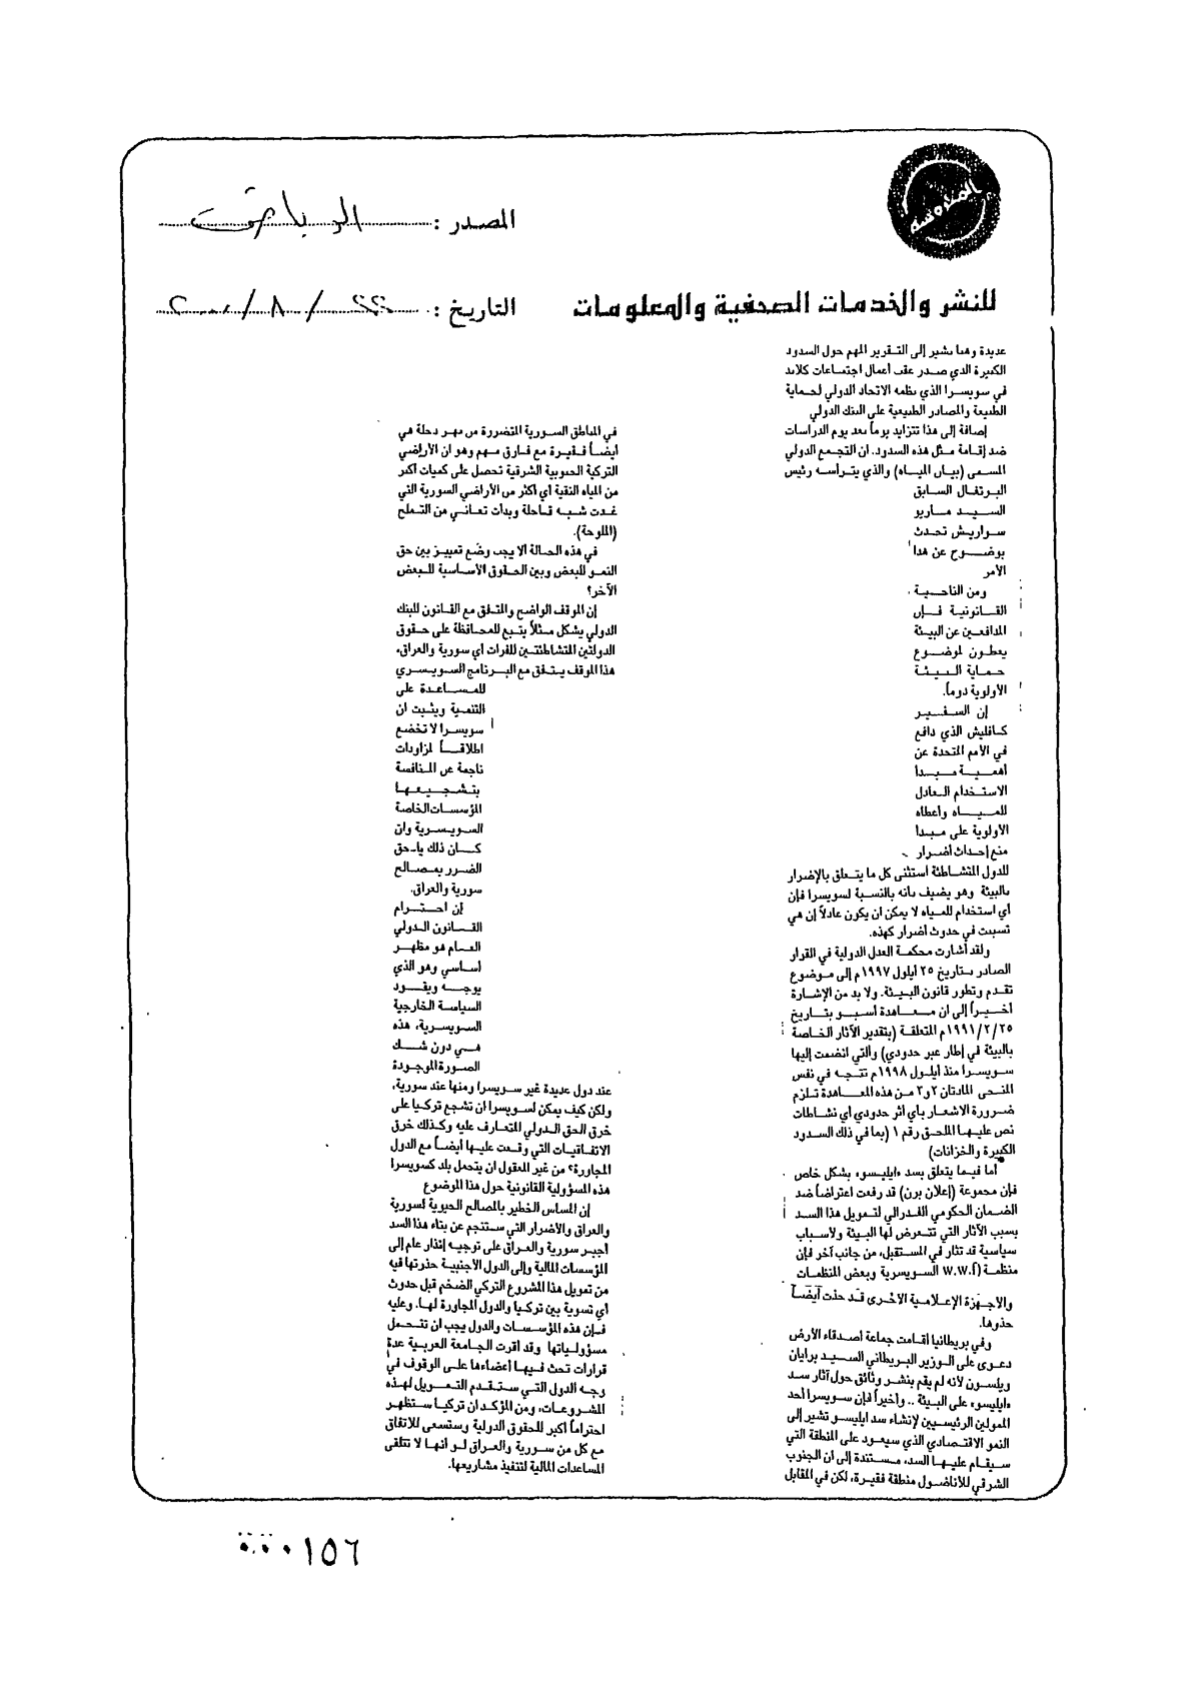 المصدر :
للنشر والخدمات الصحفية والمعلومات
التاريخ :
عديدة وهنا نشير إلى التقرير المهم حول السدود
الكبيرة الذي صدر عقب أعمال اجتماعات كلاند
في سويسرا الذي نظمه الاتحاد الدولي لحماية
الطبيعة والمصادر الطبيعية على البنك الدولي
إضافة إلى هذا تتزايد يوماً بعد يوم الدراسات
ضد إقامة مثل هذه السدود. ان التجمع الدولي
المسمى (بيان المياه) والذي يترأسه رئيس
البرتغال السابق
السيد ماريو
سواريش تحدث
بوضوح عن هذا
الأمر
ومن الناحية
القانونية فإن
المدافعين عن البيئة
يعطون لموضوع
حماية البيئة
الأولوية دوماً.
إن السفير
كافليش الذي دافع
في الأمم المتحدة عن
أهمية مبدأ
الاستخدام العادل
للمياه وأعطاه
الأولوية على مبدأ
منع إحداث أضرار
للدول المتشاطئة استثنى كل ما يتعلق بالإضرار
بالبيئة وهو يضيف بأنه بالنسبة لسويسرا فإن
أي استخدام للمياه لا يمكن ان يكون عادلاً إن هي
تسببت في حدوث أضرار كهذه.
ولقد أشارت محكمة العدل الدولية في القرار
الصادر بتاريخ ٢٥ أيلول ١٩٩٧م إلى موضوع
تقدم وتطور قانون البيئة. ولا بد من الإشارة
أخيراً إلى ان معاهدة أسبو بتاريخ
١٩٩١/٢/٢٥م المتعلقة (بتقدير الآثار الخاصة
بالبيئة في إطار عبر حدودي) والتي انضمت إليها
سويسرا منذ ايلول ١٩٩٨م تتجه في نفس
المنحى المادتان ٢و٣ من هذه المعاهدة تلزم
ضرورة الاشعار بأي اثر حدودي أي نشاطات
نص عليها الملحق رقم ١ (بما في ذلك السدود
الكبيرة والخزانات)
أما فيما يتعلق بسد «ايليسو» بشكل خاص
فإن مجموعة (إعلان برن) قد رفعت اعتراضاً ضد
الضمان الحكومي الفدرالي لتمويل هذا السد
بسبب الآثار التي تتعرض لها البيئة ولأسباب
سياسية قد تثار في المستقبل، من جانب آخر فإن
منظمة (W.W.F السويسرية وبعض المنظمات
والأجهزة الإعلامية الأخرى قد حذت أيضاً
حذوها.
وفي بريطانيا أقامت جماعة أصدقاء الأرض
دعوى على الوزير البريطاني السيد برايان
ويلسون لأنه لم يقم بنشر وثائق حول آثار سد
«ايليسو» على البيئة .. وأخيراً فإن سويسرا أحد
الممولين الرئيسيين لإنشاء سد ايليسو تشير إلى
النمو الاقتصادي الذي سيعود على المنطقة التي
سيقام عليها السد، مستندة إلى ان الجنوب
الشرقي للأناضول منطقة فقيرة، لكن في المقابل
في المناطق السورية المتضررة من نهر دجلة هي
أيضاً فقيرة مع فارق مهم وهو ان الأراضي
التركية الجنوبية الشرقية تحصل على كميات أكبر
من المياه النقية أي أكثر من الأراضي السورية التي
غدت شبه قاحلة وبدأت تعاني من التملح
(الملوحة).
في هذه الحالة ألا يجب وضع تمييز بين حق
النمو للبعض وبين الحقوق الأساسية للبعض
الآخر؟
إن الموقف الواضح والمتفق مع القانون للبنك
الدولي يشكل مثلاً يتبع للمحافظة على حقوق
الدولتين المتشاطئتين للفرات أي سورية والعراق،
هذا الموقف يتفق مع البرنامج السويسري
للمساعدة على
التنمية ويثبت ان
سويسرا لا تخضع
اطلاقاً لمزاودات
ناجمة عن المنافسة
بتشجيعها
المؤسسات الخاصة
السويسرية وان
كان ذلك يلحق
الضرر بمصالح
سورية والعراق.
إن احترام
القانون الدولي
العام هو مظهر
أساسي وهو الذي
يوجه ويقود
السياسة الخارجية
السويسرية، هذه
هي دون شك
الصورة الموجودة
عند دول عديدة غير سويسرا ومنها عند سورية،
ولكن كيف يمكن لسويسرا ان تشجع تركيا على
خرق الحق الدولي المتعارف عليه وكذلك خرق
الاتفاقيات التي وقعت عليها أيضاً مع الدول
المجاورة؟ من غير المعقول ان يتحمل بلد كسويسرا
هذه المسؤولية القانونية حول هذا الموضوع
إن المساس الخطير بالمصالح الحيوية لسورية
والعراق والأضرار التي ستنجم عن بناء هذا السد
أجبر سورية والعراق على توجيه إنذار عام إلى
المؤسسات المالية وإلى الدول الأجنبية حذرتها فيه
من تمويل هذا المشروع التركي الضخم قبل حدوث
أي تسوية بين تركيا والدول المجاورة لها. وعليه
فإن هذه المؤسسات والدول يجب ان تتحمل
مسؤولياتها وقد اقرت الجامعة العربية عدة
قرارات تحث فيها أعضاءها على الوقوف في
وجه الدول التي ستقدم التمويل لهذه
المشروعات، ومن المؤكد ان تركيا ستظهر
احتراماً أكبر للحقوق الدولية وستسعى للاتفاق
مع كل من سورية والعراق لو أنها لا تتلقى
المساعدات المالية لتنفيذ مشاريعها.